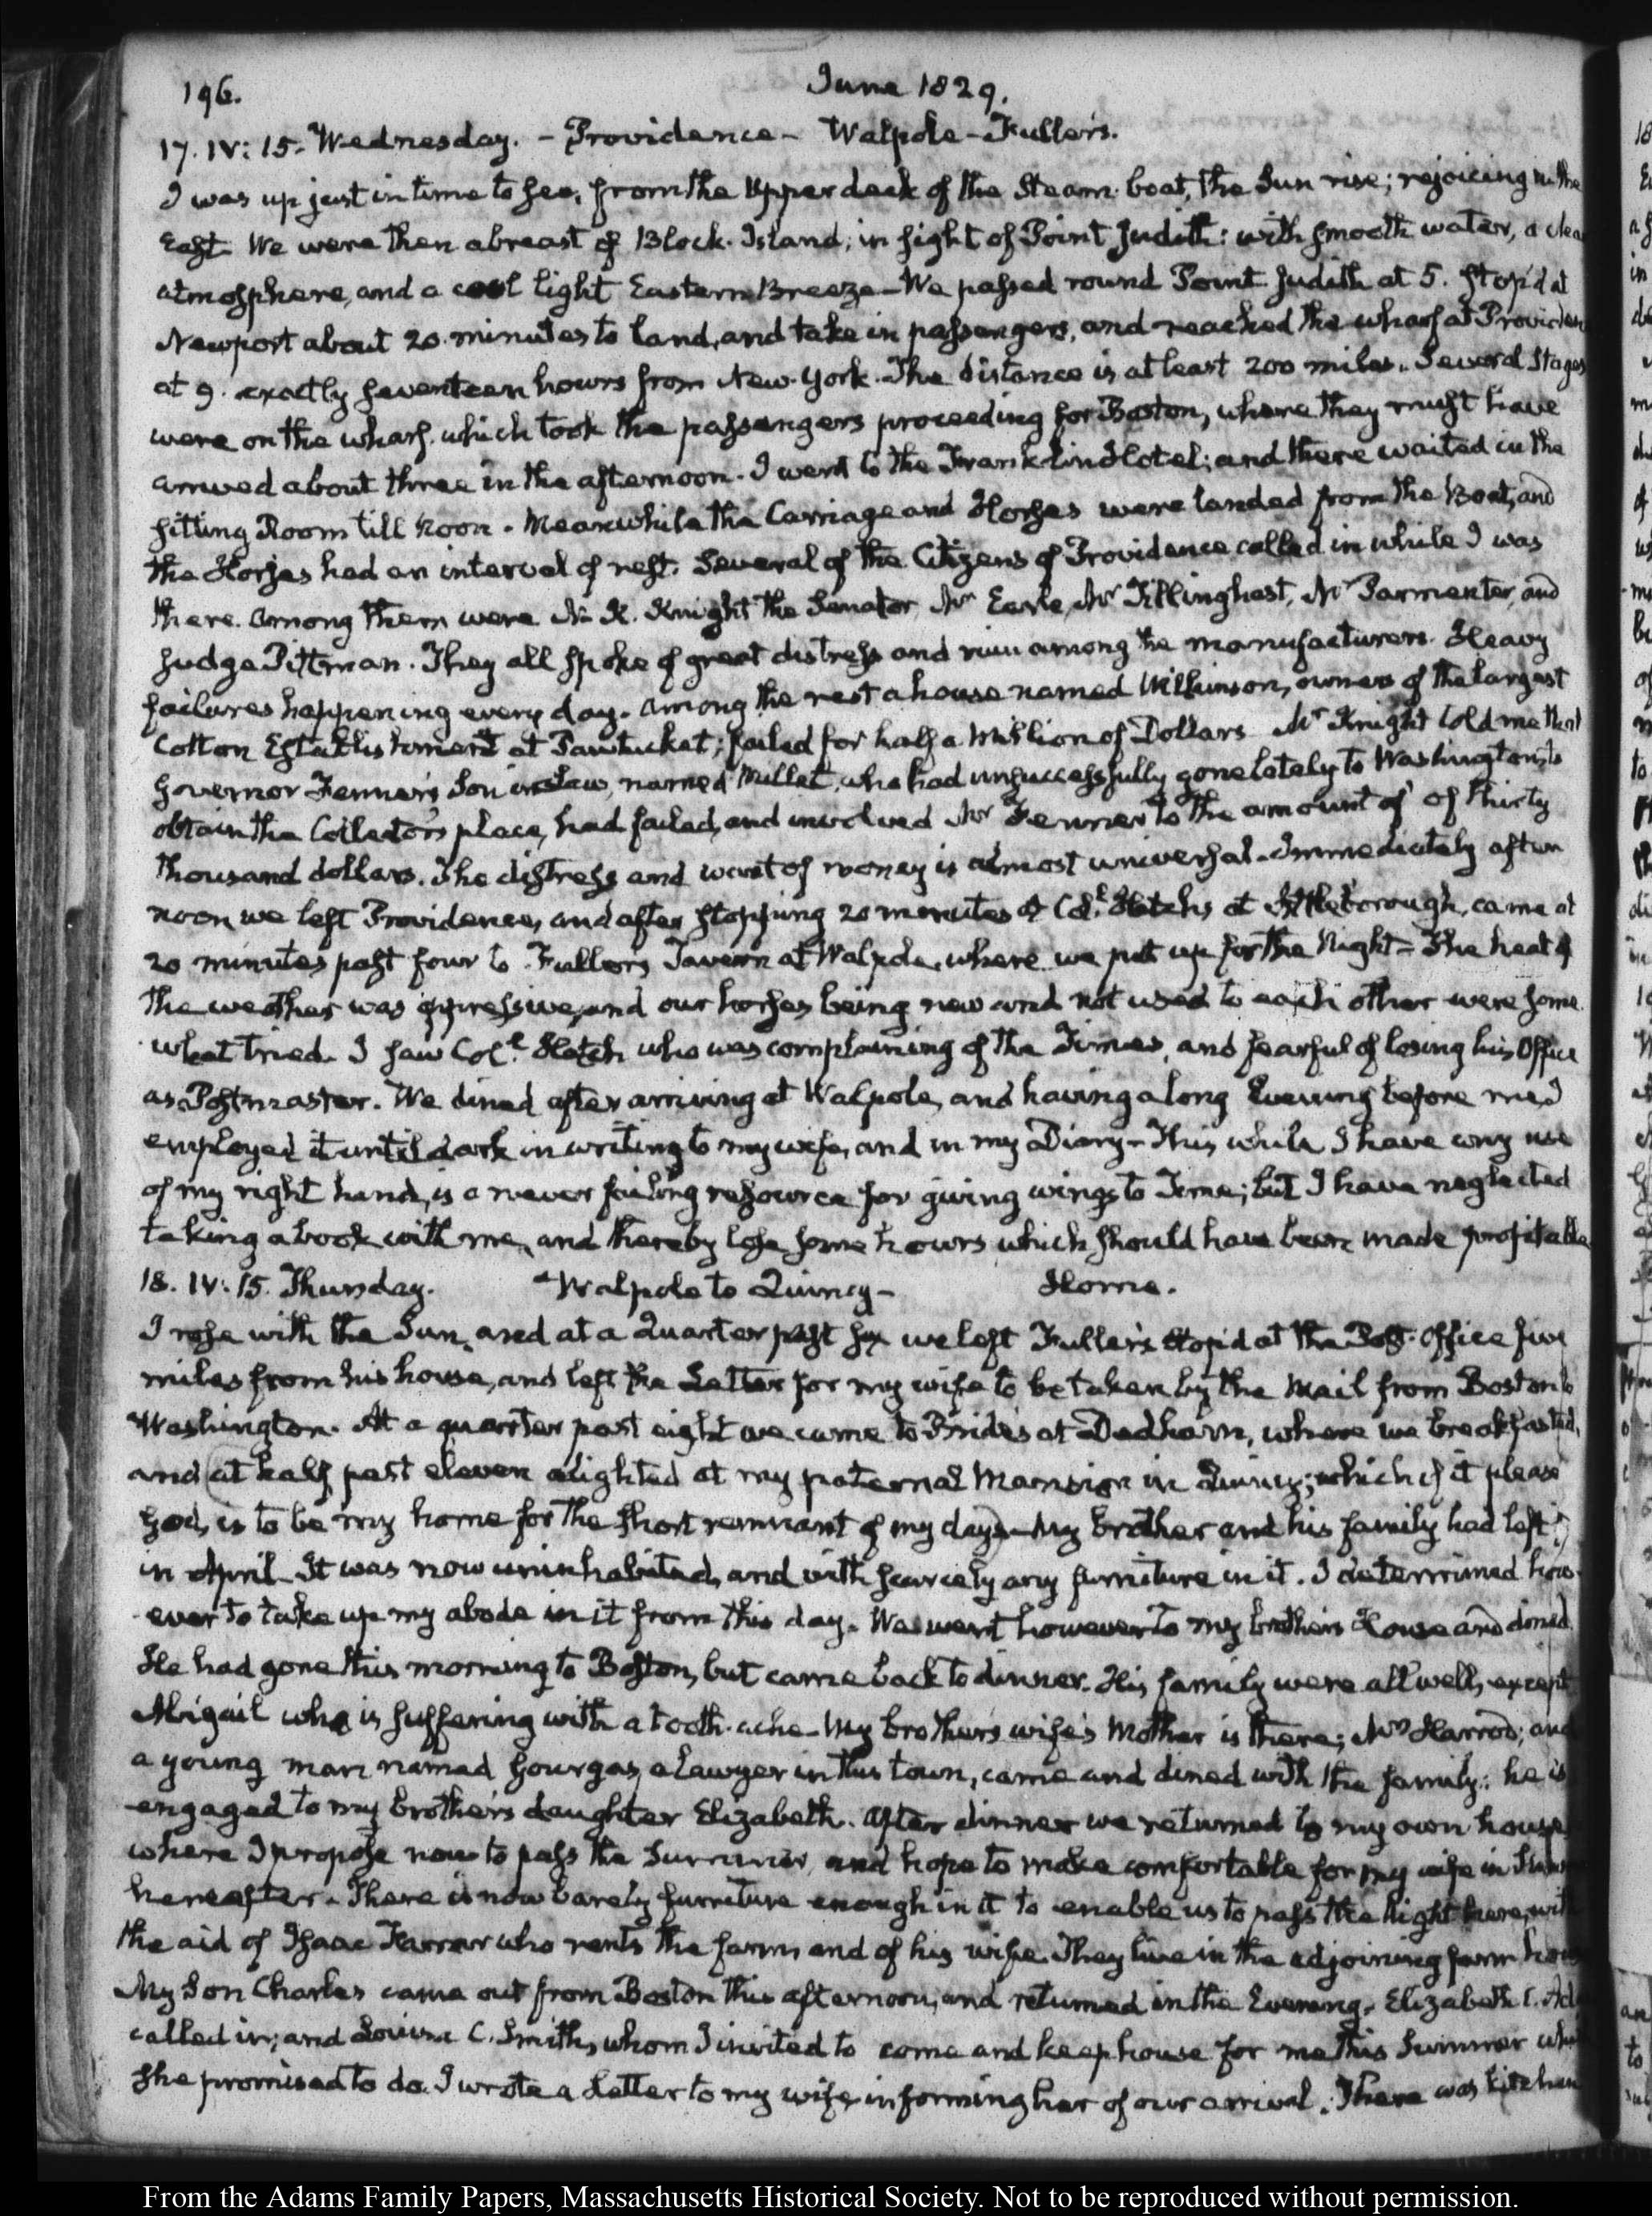 196.
June 1829.
17. IV: 15. Wednesday. - Providence - Walpole - Fuller's.
I was up just in time to see, from the Upper deck of the Steam-boat, the Sun rise; rejoicing in the
East. We were then abreast of Block-Island; in sight of Point Judith: with smooth water, a clea
atmosphere, and a cool light Eastern Breeze - We passed round Point Judith at 5. Stop'd at
Newport about 20 minutes to land, and take in passengers, and reached the wharf at Providen
at 9. exactly seventeen hours from New-York. The distance is at least 200 miles. Several Stages
were on the wharf, which took the passengers proceeding for Boston, where they must have
arrived about three in the afternoon. I went to the Franklin Hotel; and there waited in the
sitting Room till Noon. Meanwhile the Carriage and Horses were landed from the Boat, and
the Horses had an interval of rest. Several of the Citizens of Providence called in while I was
there. Among them were N. R. Knight the Senator, Mr Earle, Mr Tillinghast, Mr Parmenter, and
Judge Pittman. They all spoke of great distress and ruin among the manufacturers. Heavy
failures happening every day. Among the rest a house named Wilkinson, owners of the largest
Cotton Establishment at Pawtucket; failed for half a Million of Dollars. Mr Knight told me that
Governor Fenner's Son in Law, named Mallet, who had unsuccessfully gone lately to Washington, to
obtain the Collector's place, had failed, and involved Mr Fenner to the amount of of thirty
thousand dollars. The distress and want of money is almost universal. Immediately after
noon we left Providence, and after stopping 20 minutes at Coll. Hatch's at Attleborough, came at
20 minutes past four to Fuller's Tavern at Walpole, where we put up for the Night - The heat of
the weather was oppressive, and our horses being new and not used to each other were some
what tried. I saw Coll. Hatch who was complaining of the Times, and fearful of losing his Office
as Postmaster. We dined after arriving at Walpole, and having a long Evening before me I
employed it until dark in writing to my wife, and in my Diary - This while I have any use
of my right hand, is a never failing resource for giving wings to Time; but I have neglected
taking a book with me, and thereby lose some hours which should have been made profitable
18. IV: 15. Thursday. - Walpole to Quincy - Home.
I rose with the Sun, and at a Quarter past six we left Fuller's stop'd at the Post-Office five
miles from his house, and left the Letter for my wife to be taken by the Mail from Boston to
Washington. At a quarter past eight we came to Bride's at Dedham, where we breakfasted,
and at half past eleven alighted at my paternal Mansion in Quincy; which if it please
God, is to be my home for the short remnant of my days - My brother and his family had left it
in April - It was now uninhabited, and with scarcely any furniture in it. I determined how-
ever to take up my abode in it from this day. We went however to my brother's House and dined.
He had gone this morning to Boston, but came back to dinner. His family were all well, except
Abigail who is suffering with a tooth-ache - My brother's wife's Mother is there; Mrs Harrod; and
a young man named Gourgas, a Lawyer in this town, came and dined with the family: he is
engaged to my brother's daughter Elizabeth. After dinner we returned to my own house
where I propose now to pass the Summer, and hope to make comfortable for my wife in
hereafter - There is now barely furniture enough in it to enable us to pass the Night here, with
the aid of Isaac Farrar who rents the farm and of his wife. They live in the adjoining farm hou
My Son Charles came out from Boston this afternoon, and returned in the Evening. Elizabeth C. Ad
called in; and Louisa C. Smith, whom I invited to come and keep house for me this Summer whi
she promised to do. I wrote a Letter to my wife informing her of our arrival. There was kitchen
From the Adams Family Papers, Massachusetts Historical Society. Not to be reproduced without permission.